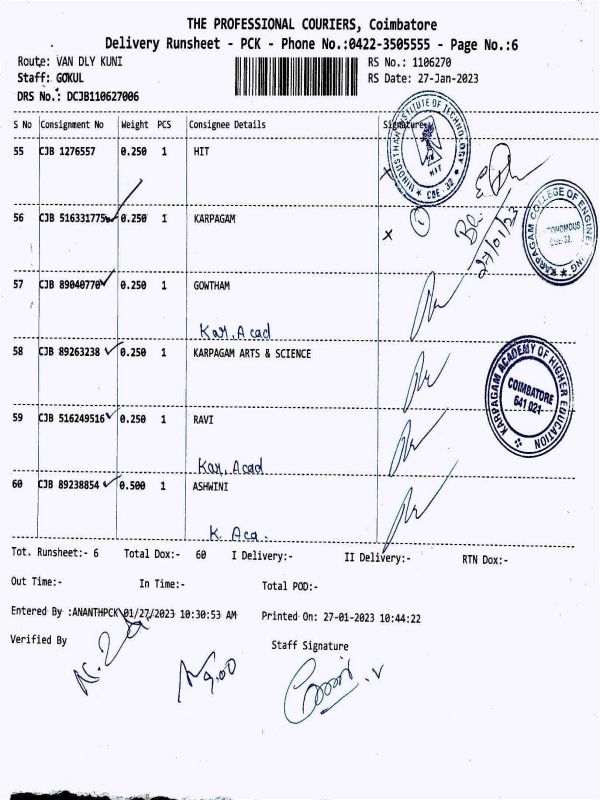 THE PROFESSIONAL COURIERS, Coimbatore
Delivery Runsheet - PCK - Phone No.:0422-3505555 - Page No.:6
Route: VAN DLY KUNI
RS No.: 1106270
Staff: GOKUL
RS Date: 27-Jan-2023
DRS No.: DCJB110627006
S No Consignment No Weight PCS Consignee Details Signature
55 CJB 1276557 0.250 1 HIT
HINDUSTHAN INSTITUTE OF TECHNOLOGY
HIT
★ CBE-32 ★
56 CJB 516331775 0.250 1 KARPAGAM
x
27/01/23
KARPAGAM COLLEGE OF ENGINEERING
AUTONOMOUS
CBE-32.
57 CJB 89040770 0.250 1 GOWTHAM
Kar. Acad
58 CJB 89263238 0.250 1 KARPAGAM ARTS & SCIENCE
KARPAGAM ACADEMY OF HIGHER EDUCATION
COIMBATORE
641 021
59 CJB 516249516 0.250 1 RAVI
Kar. Acad
60 CJB 89238854 0.500 1 ASHWINI
K. Aca.
Tot. Runsheet:- 6 Total Dox:- 60 I Delivery:- II Delivery:- RTN Dox:-
Out Time:- In Time:- Total POD:-
Entered By :ANANTHPCK 01/27/2023 10:30:53 AM Printed On: 27-01-2023 10:44:22
Verified By
Staff Signature
9.00